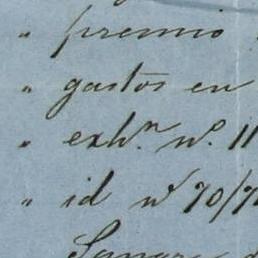 " premio
" gastos en
" exhn. no. 11
" id no 70/7